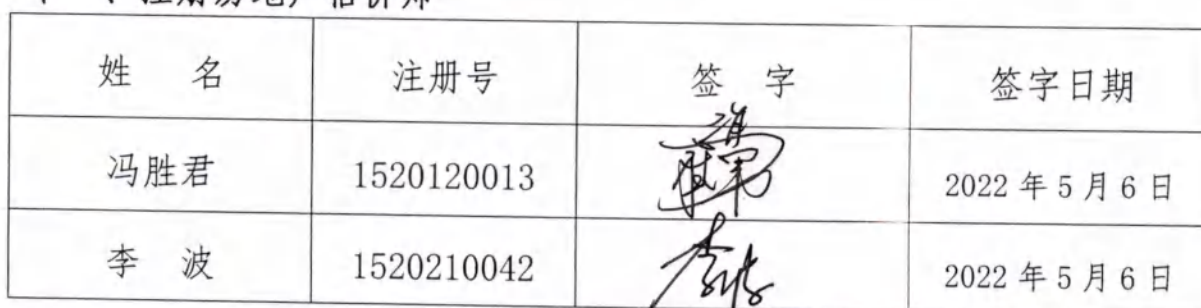 姓 名 注册号 签 字 签字日期
冯胜君 1520120013 2022年5月6日
李 波 1520210042 2022年5月6日